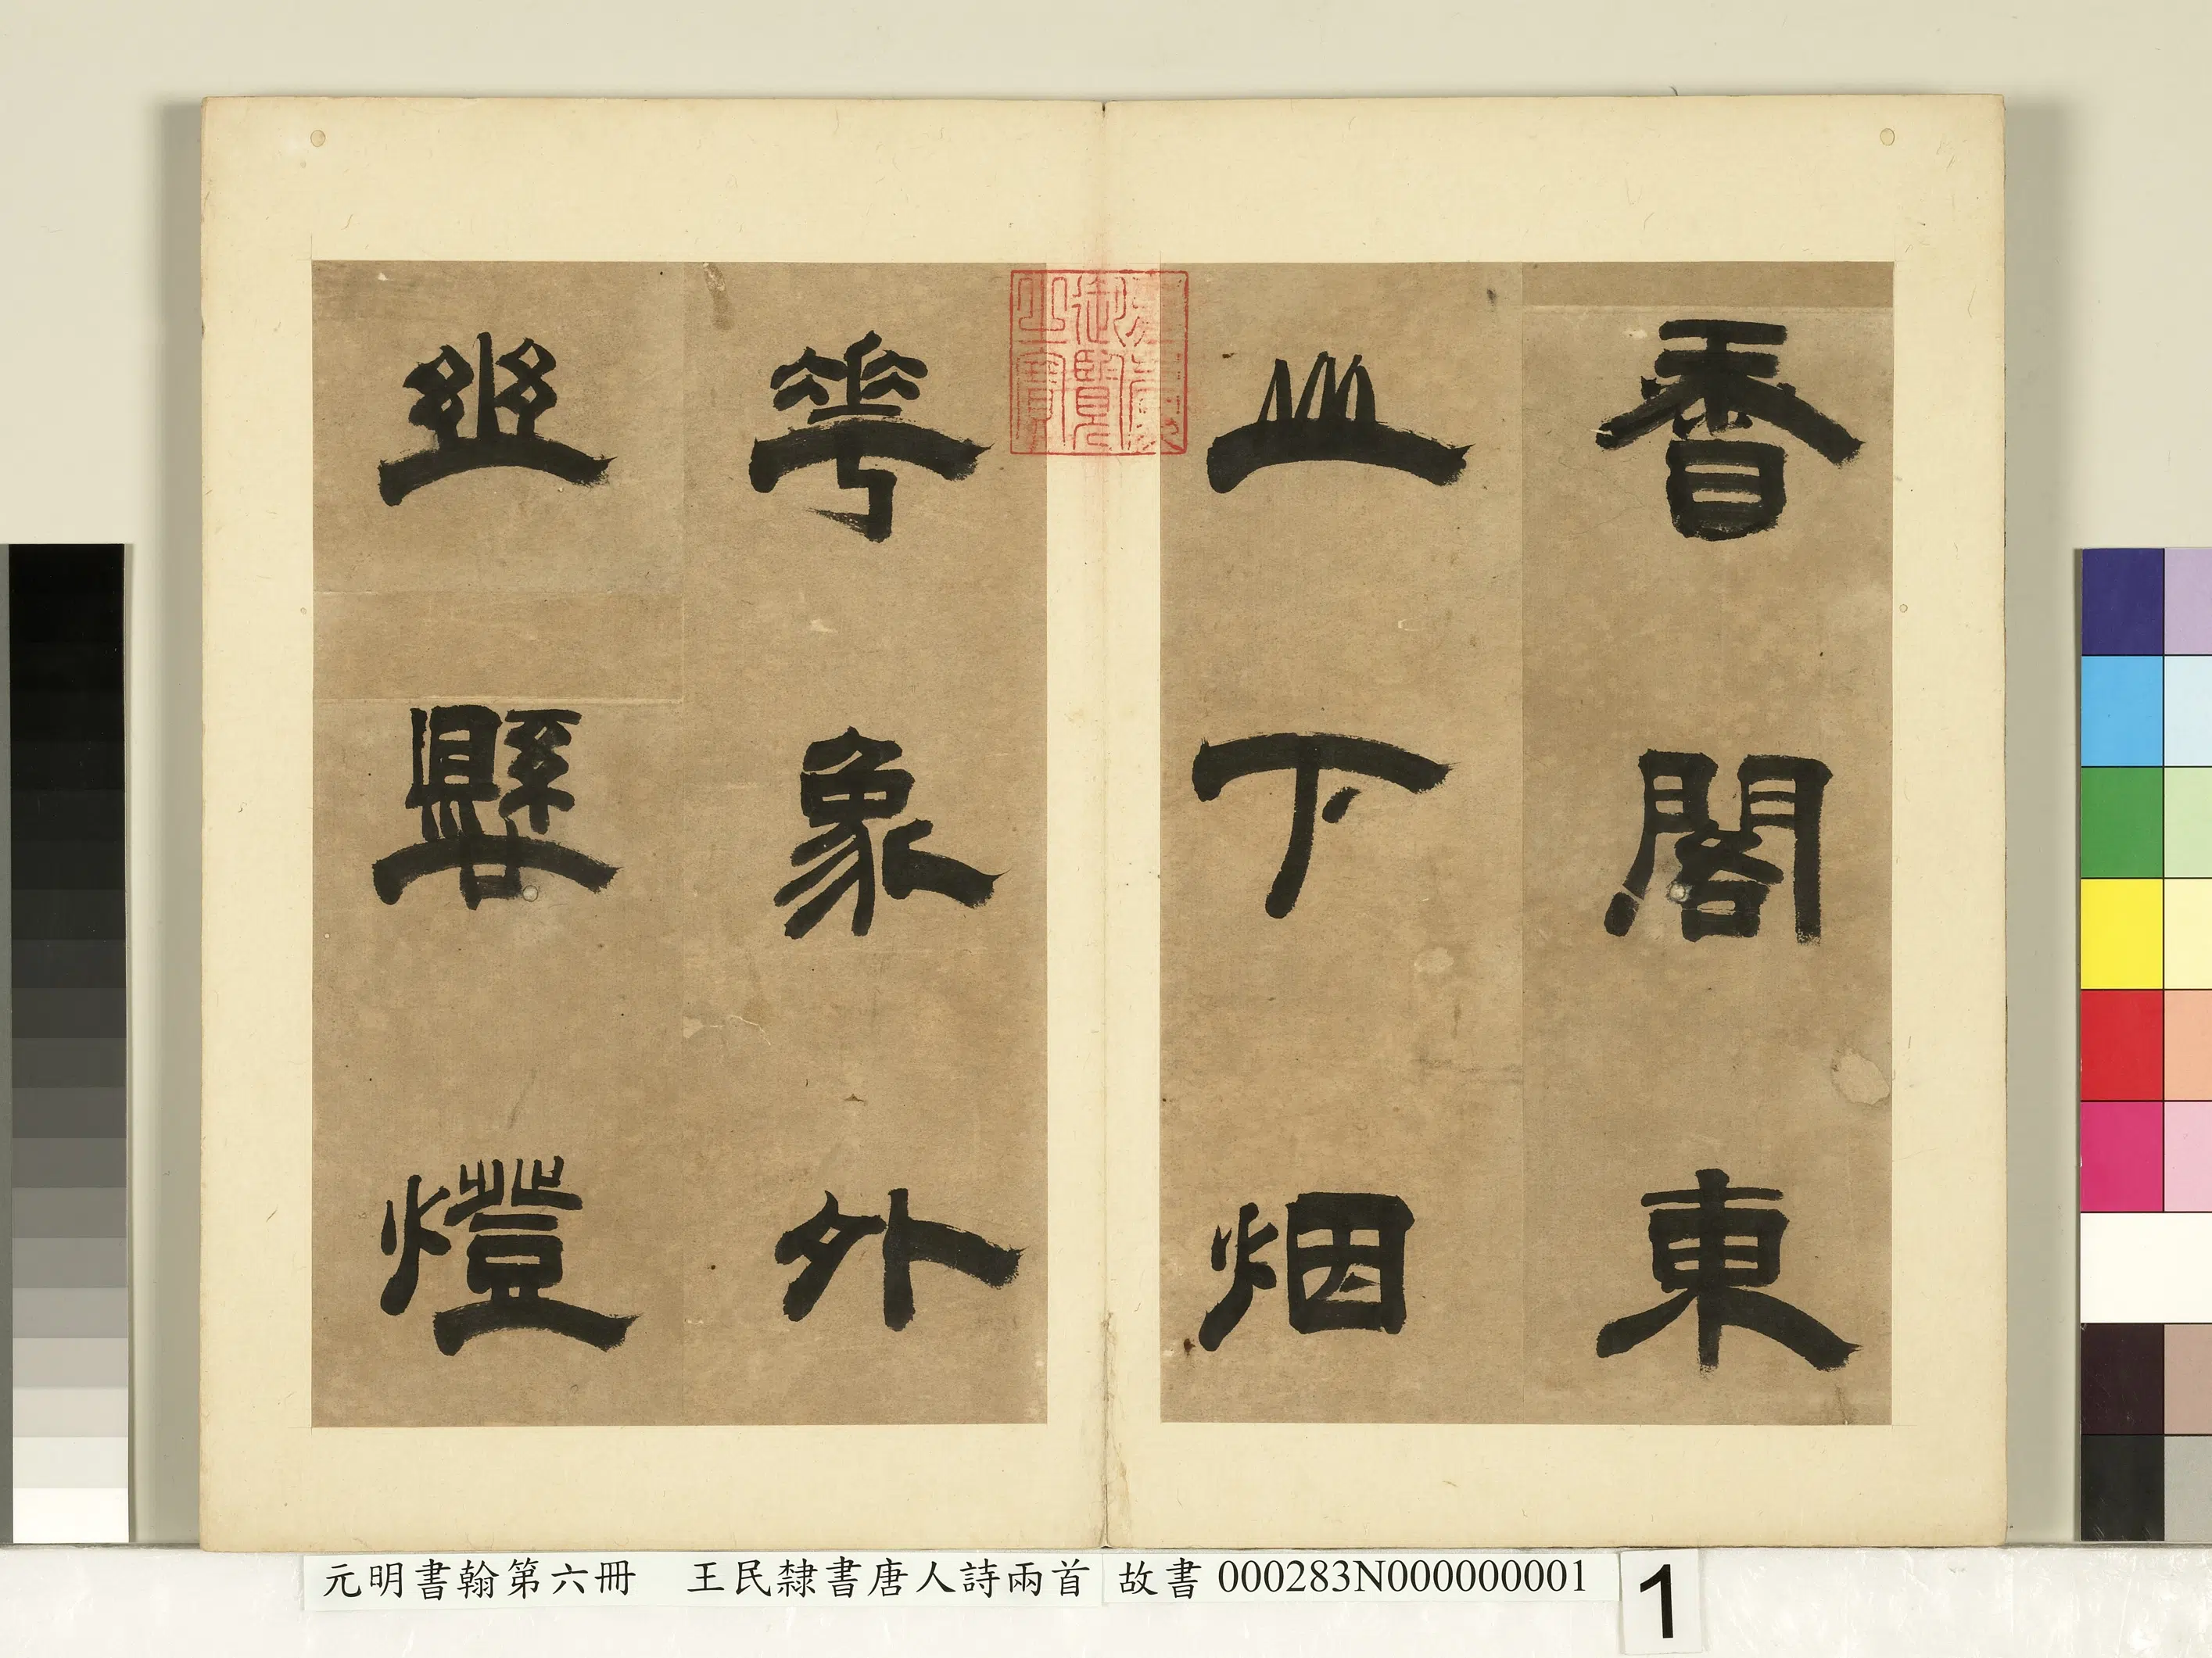 香閣東
山下烟
華象外
幽懸燈
御覽
之寶
元明書翰第六冊 王民隸書唐人詩兩首 故書 000283N000000001
1